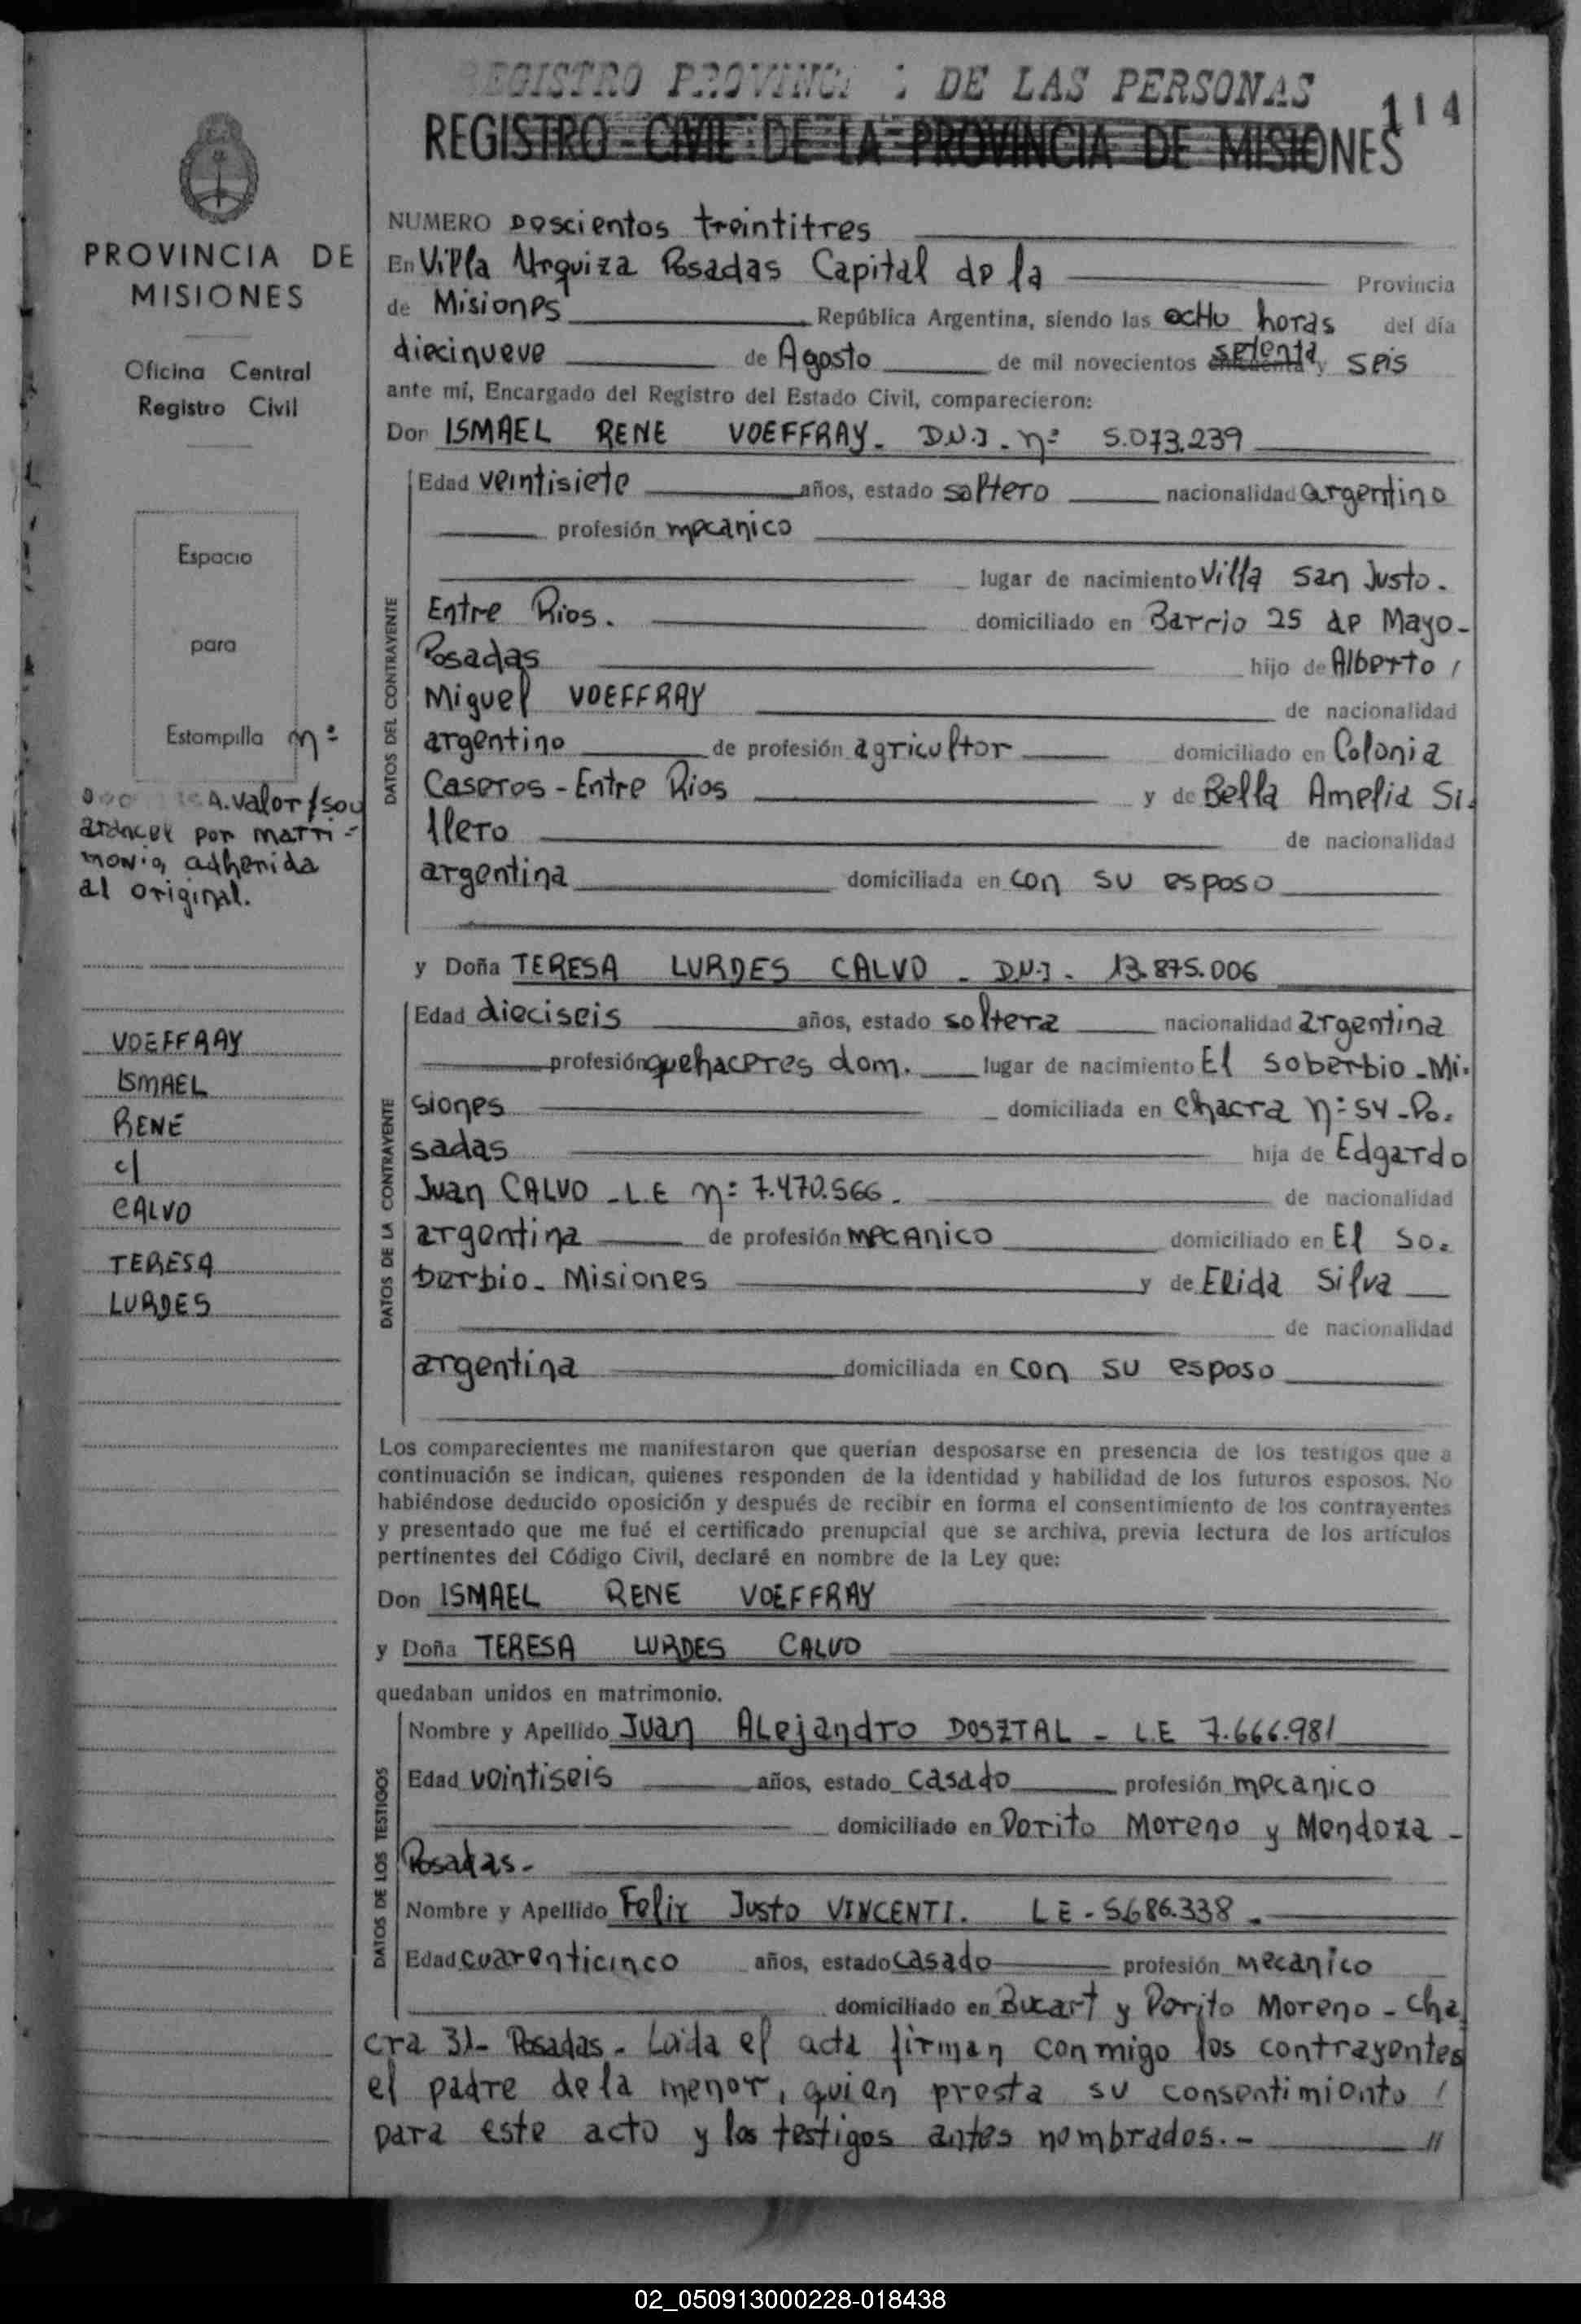 REGISTRO PROVINC DE LAS PERSONAS
114
REGISTRO CIVIL DE LA PROVINCIA DE MISIONES
PROVINCIA DE
MISIONES
Oficina Central
Registro Civil
Espacio
para
Estampilla nº
A. valor / sou
arancel por matri-
monio, adherida
al original.
VOEFFRAY
ISMAEL
RENÉ
c/
CALVO
TERESA
LURDES
NUMERO Doscientos treintitres
En Villa Urquiza Posadas Capital de la Provincia
de Misiones República Argentina, siendo las ocho horas del día
diecinueve de Agosto de mil novecientos setenta y seis
ante mí, Encargado del Registro del Estado Civil, comparecieron:
Don ISMAEL RENE VOEFFRAY - D.N.I. nº 5.073.239
DATOS DEL CONTRAYENTE
Edad veintisiete años, estado soltero nacionalidad argentino
profesión mecanico
lugar de nacimiento Villa San Justo.
Entre Rios. domiciliado en Barrio 25 de Mayo-
Posadas hijo de Alberto /
Miguel VOEFFRAY de nacionalidad
argentino de profesión agricultor domiciliado en Colonia
Caseros - Entre Rios y de Bella Amelia Si-
llero de nacionalidad
argentina domiciliada en con su esposo
y Doña TERESA LURDES CALVO - D.N.I. 13.875.006
DATOS DE LA CONTRAYENTE
Edad dieciseis años, estado soltera nacionalidad argentina
profesión quehaceres dom. lugar de nacimiento El Soberbio - Mi-
siones domiciliada en Chacra nº 54 - Po-
sadas hija de Edgardo
Juan CALVO - L.E nº 7.470.566. de nacionalidad
argentina de profesión mecanico domiciliado en El So-
berbio - Misiones y de Elida Silva
de nacionalidad
argentina domiciliada en con su esposo
Los comparecientes me manifestaron que querían desposarse en presencia de los testigos que a
continuación se indican, quienes responden de la identidad y habilidad de los futuros esposos. No
habiéndose deducido oposición y después de recibir en forma el consentimiento de los contrayentes
y presentado que me fué el certificado prenupcial que se archiva, previa lectura de los artículos
pertinentes del Código Civil, declaré en nombre de la Ley que:
Don ISMAEL RENE VOEFFRAY
y Doña TERESA LURDES CALVO
quedaban unidos en matrimonio.
DATOS DE LOS TESTIGOS
Nombre y Apellido Juan Alejandro DOSZTAL - L.E 7.666.981
Edad veintiseis años, estado casado profesión mecanico
domiciliado en Perito Moreno y Mendoza -
Posadas.-
Nombre y Apellido Felix Justo VINCENTI. L E - 5.686.338 -
Edad cuarenticinco años, estado casado profesión mecanico
domiciliado en Bucart y Perito Moreno - Cha
cra 31- Posadas - Leida el acta firman conmigo los contrayentes
el padre de la menor, quien presta su consentimiento /
para este acto y los testigos antes nombrados. - //
02_050913000228-018438